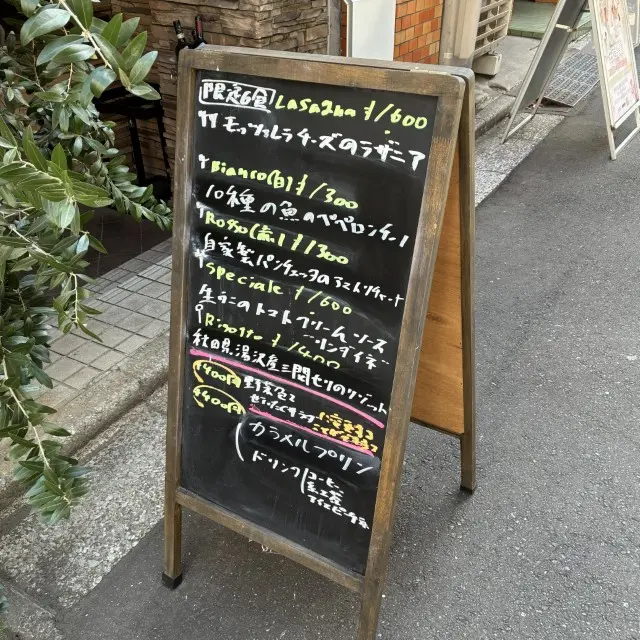 限定6食 Lasagna ¥1600
モッツァレラチーズのラザニア
Bianco(白) ¥1300
10種の魚のペペロンチーノ
Rosso(赤) ¥1300
自家製パンチェッタのアマトリチャーナ
Speciale ¥1600
生うにのトマトクリームソース
リングイネ
Risotto ¥1400
秋田県湯沢産三関セリのリゾット
+400円 野菜全て
+400円
カラメルプリン
ドリンク コーヒー
紅茶